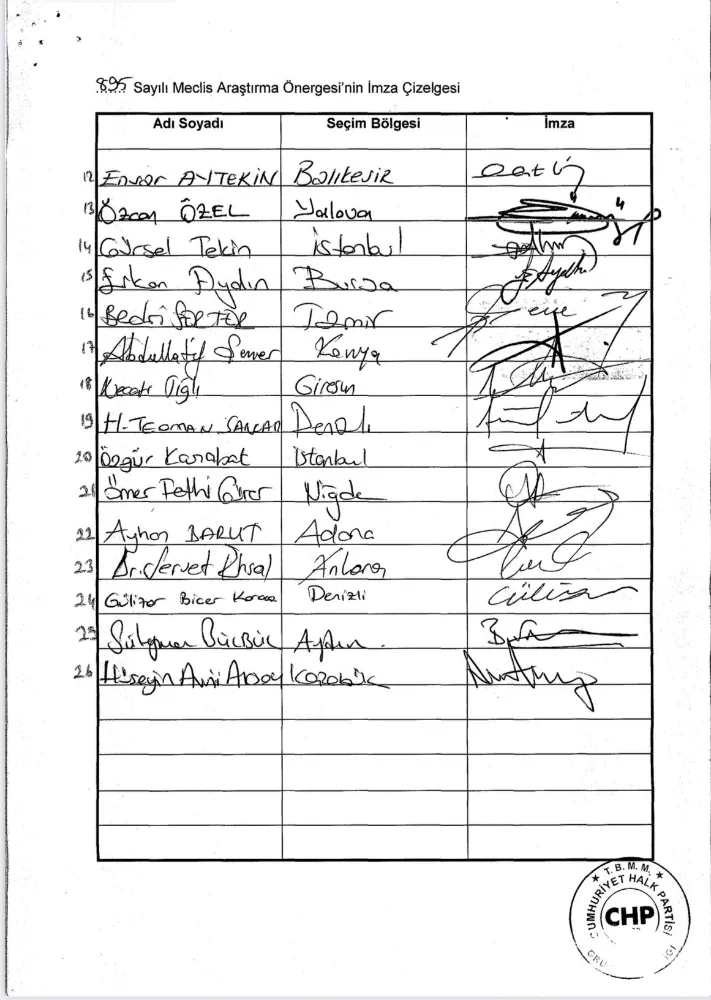 895 Sayılı Meclis Araştırma Önergesi'nin İmza Çizelgesi
Adı Soyadı Seçim Bölgesi İmza
12 Ensar AYTEKİN Balıkesir
13 Özcan ÖZEL Yalova
14 Gürsel Tekin İstanbul
15 Erkan Aydın Bursa
16 Bedri SERTER İzmir
17 Abdullatif Şener Konya
18 Necati Tığlı Giresun
19 H-TEOMAN SANCAR Denizli
20 Özgür Karabat İstanbul
21 Ömer Fethi Gürer Niğde
22 Ayhan BARUT Adana
23 Dr. Servet Ünsal Ankara
24 Gülizar Biçer Karaca Denizli
25 Süleyman Bülbül Aydın.
26 Hüseyin Avni Aksoy Karabük
T.B.M.M.
CUMHURİYET HALK PARTİSİ
CHP